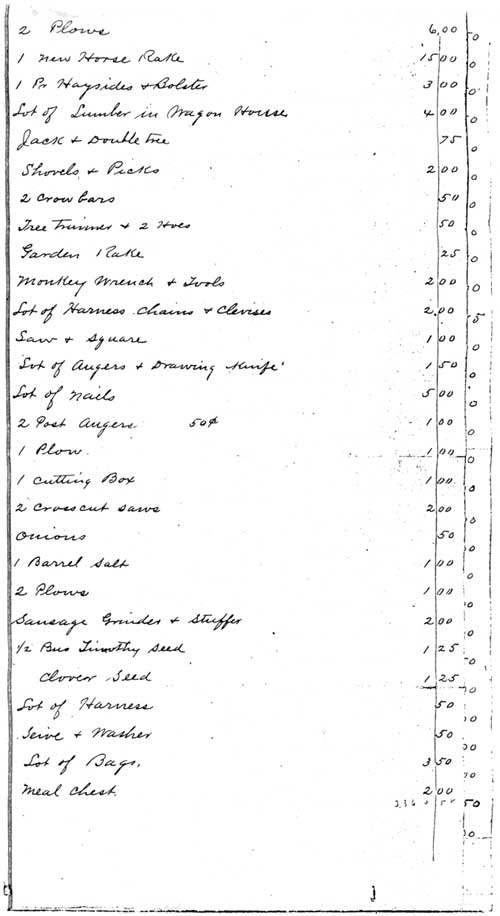 2 Plows 6,00
1 new Horse Rake 15 00
1 Pr Haysides & Bolster 3 00
Lot of Lumber in Wagon House 4 00
Jack & Double tree 75
Shovels & Picks 2 00
2 Crow bars 50
Tree Trimmer & 2 Hoes 50
Garden Rake 25
Monkey Wrench & Tools 2 00
Lot of Harness Chains & Clevises 2.00
Saw & Square 1 00
Lot of Augers & Drawing Knife 1 50
Lot of Nails 5 00
2 Post Augers 50¢ 1 00
1 Plow. 1 00
1 Cutting Box 1 00
2 Crosscut saws 2 00
Onions 50
1 Barrel Salt 1 00
2 Plows 1 00
Sausage Grinder & Stuffer 2 00
1/2 Bus Timothy Seed 1 25
Clover Seed 1 25
Lot of Harness 50
Seive & Washer 50
Lot of Bags. 3 50
Meal Chest. 2 00
50